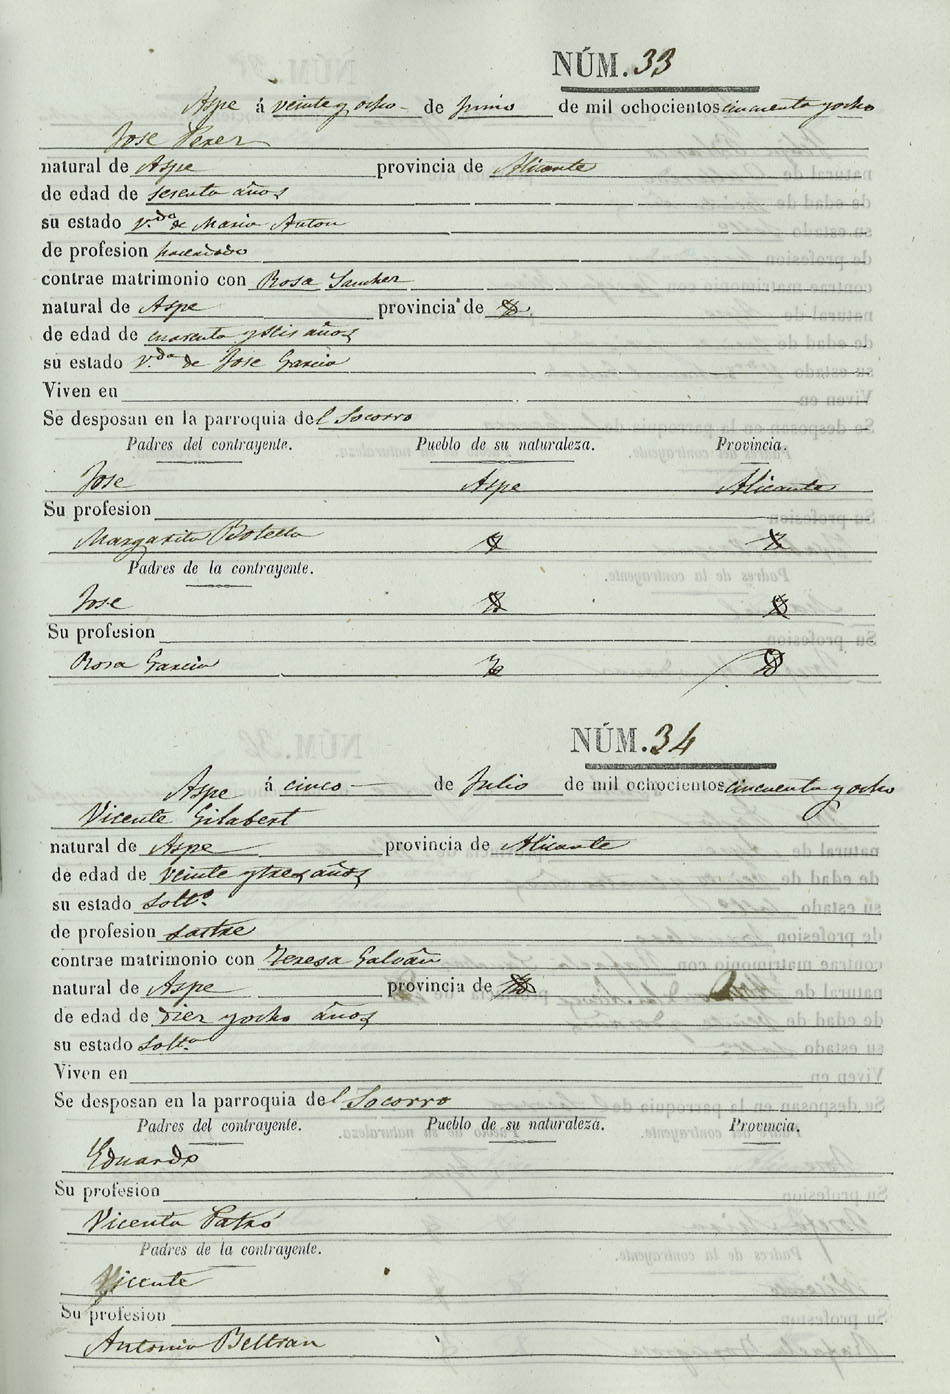 NÚM. 33
Aspe á veinte y ocho de Junio de mil ochocientos cincuenta y ocho
Jose Perez
natural de Aspe provincia de Alicante
de edad de sesenta años
su estado v.do de Maria Anton
de profesion hacendado
contrae matrimonio con Rosa Sanchez
natural de Aspe provincia de
de edad de cuarenta y seis años
su estado v.da de Jose Garcia
Viven en
Se desposan en la parroquia del Socorro
Padres del contrayente. Pueblo de su naturaleza. Provincia.
Jose Aspe Alicante
Su profesion
Margarita Botella
Padres de la contrayente.
Jose
Su profesion
Rosa Garcia
NÚM. 34
Aspe á cinco de Julio de mil ochocientos cincuenta y ocho
Vicente Gilabert
natural de Aspe provincia de Alicante
de edad de veinte y tres años
su estado solt.o
de profesion sastre
contrae matrimonio con Teresa Galván
natural de Aspe provincia de
de edad de diez y ocho años
su estado solt.a
Viven en
Se desposan en la parroquia del Socorro
Padres del contrayente. Pueblo de su naturaleza. Provincia.
Eduardo
Su profesion
Vicenta Patró
Padres de la contrayente.
Vicente
Su profesion
Antonia Beltran